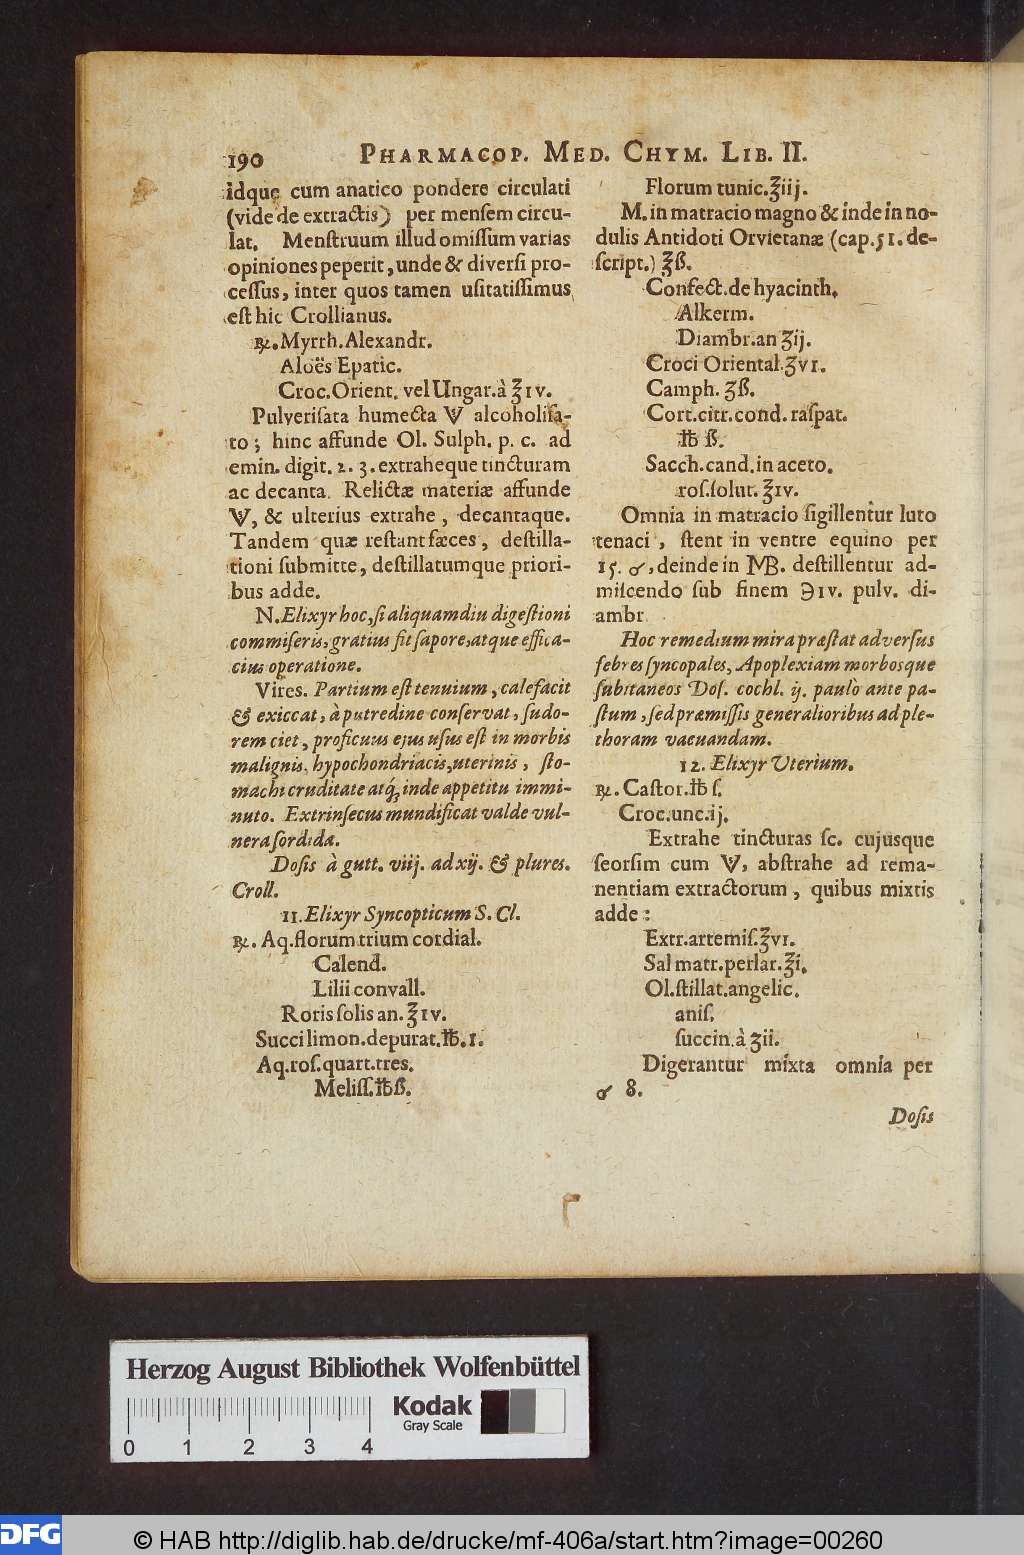 190 PHARMACOP. MED. CHYM. LIB. II.
idque cum anatico pondere circulati
(vide de extractis) per menſem circu-
lat. Menſtruum illud omiſſum varias
opiniones peperit, unde & diverſi pro-
ceſſus, inter quos tamen uſitatiſſimus
eſt hic Crollianus.
℞. Myrrh. Alexandr.
Aloës Epatic.
Croc. Orient. vel Ungar. à ℥ IV.
Pulveriſata humecta 🜈 alcoholiſa-
to; hinc affunde Ol. Sulph. p. c. ad
emin. digit. 2. 3. extraheque tincturam
ac decanta. Relictæ materiæ affunde
🜈, & ulterius extrahe, decantaque.
Tandem quæ reſtant fæces, deſtilla-
tioni ſubmitte, deſtillatumque priori-
bus adde.
N. Elixyr hoc, ſi aliquamdiu digeſtioni
commiſeris, gratius fit ſapore, atque effica-
cius operatione.
Vires. Partium eſt tenuium, calefacit
& exiccat, à putredine conſervat, ſudo-
rem ciet, proficuus ejus uſus eſt in morbis
malignis, hypochondriacis, uterinis, ſto-
machi cruditate atq́; inde appetitu immi-
nuto. Extrinſecus mundificat valde vul-
nera ſordida.
Doſis à gutt. viij. ad xij. & plures.
Croll.
11. Elixyr Syncopticum S. Cl.
℞. Aq. florum trium cordial.
Calend.
Lilii convall.
Roris ſolis an. ℥ IV.
Succi limon. depurat. ℔. I.
Aq. roſ. quart. tres.
Meliſſ. ℔ ß.
Florum tunic. ℥iij.
M. in matracio magno & inde in no-
dulis Antidoti Orvietanæ (cap. 51. de-
ſcript.) ℥ß.
Confect. de hyacinth.
Alkerm.
Diambr. an ʒij.
Croci Oriental. ʒVI.
Camph. ʒß.
Cort. citr. cond. raſpat.
℔ ß.
Sacch. cand. in aceto.
roſ. ſolut. ℥IV.
Omnia in matracio ſigillentur luto
tenaci, ſtent in ventre equino per
15. ♂, deinde in MB. deſtillentur ad-
miſcendo ſub finem ℈IV. pulv. di-
ambr.
Hoc remedium mira præſtat adverſus
febres ſyncopales, Apoplexiam morbosque
ſubitaneos Doſ. cochl. ij. paulò ante pa-
ſtum, ſed præmiſſis generalioribus ad ple-
thoram vacuandam.
12. Elixyr Uterium.
℞. Caſtor. ℔ ſ.
Croc. unc. ij.
Extrahe tincturas ſc. cujusque
ſeorſim cum 🜈, abſtrahe ad rema-
nentiam extractorum, quibus mixtis
adde:
Extr. artemiſ. ℥VI.
Sal matr. perlar. ℥i.
Ol. ſtillat. angelic.
aniſ.
ſuccin. à ʒii.
Digerantur mixta omnia per
♂ 8.
Doſis
Herzog August Bibliothek Wolfenbüttel
Kodak
Gray Scale
0 1 2 3 4
DFG © HAB http://diglib.hab.de/drucke/mf-406a/start.htm?image=00260